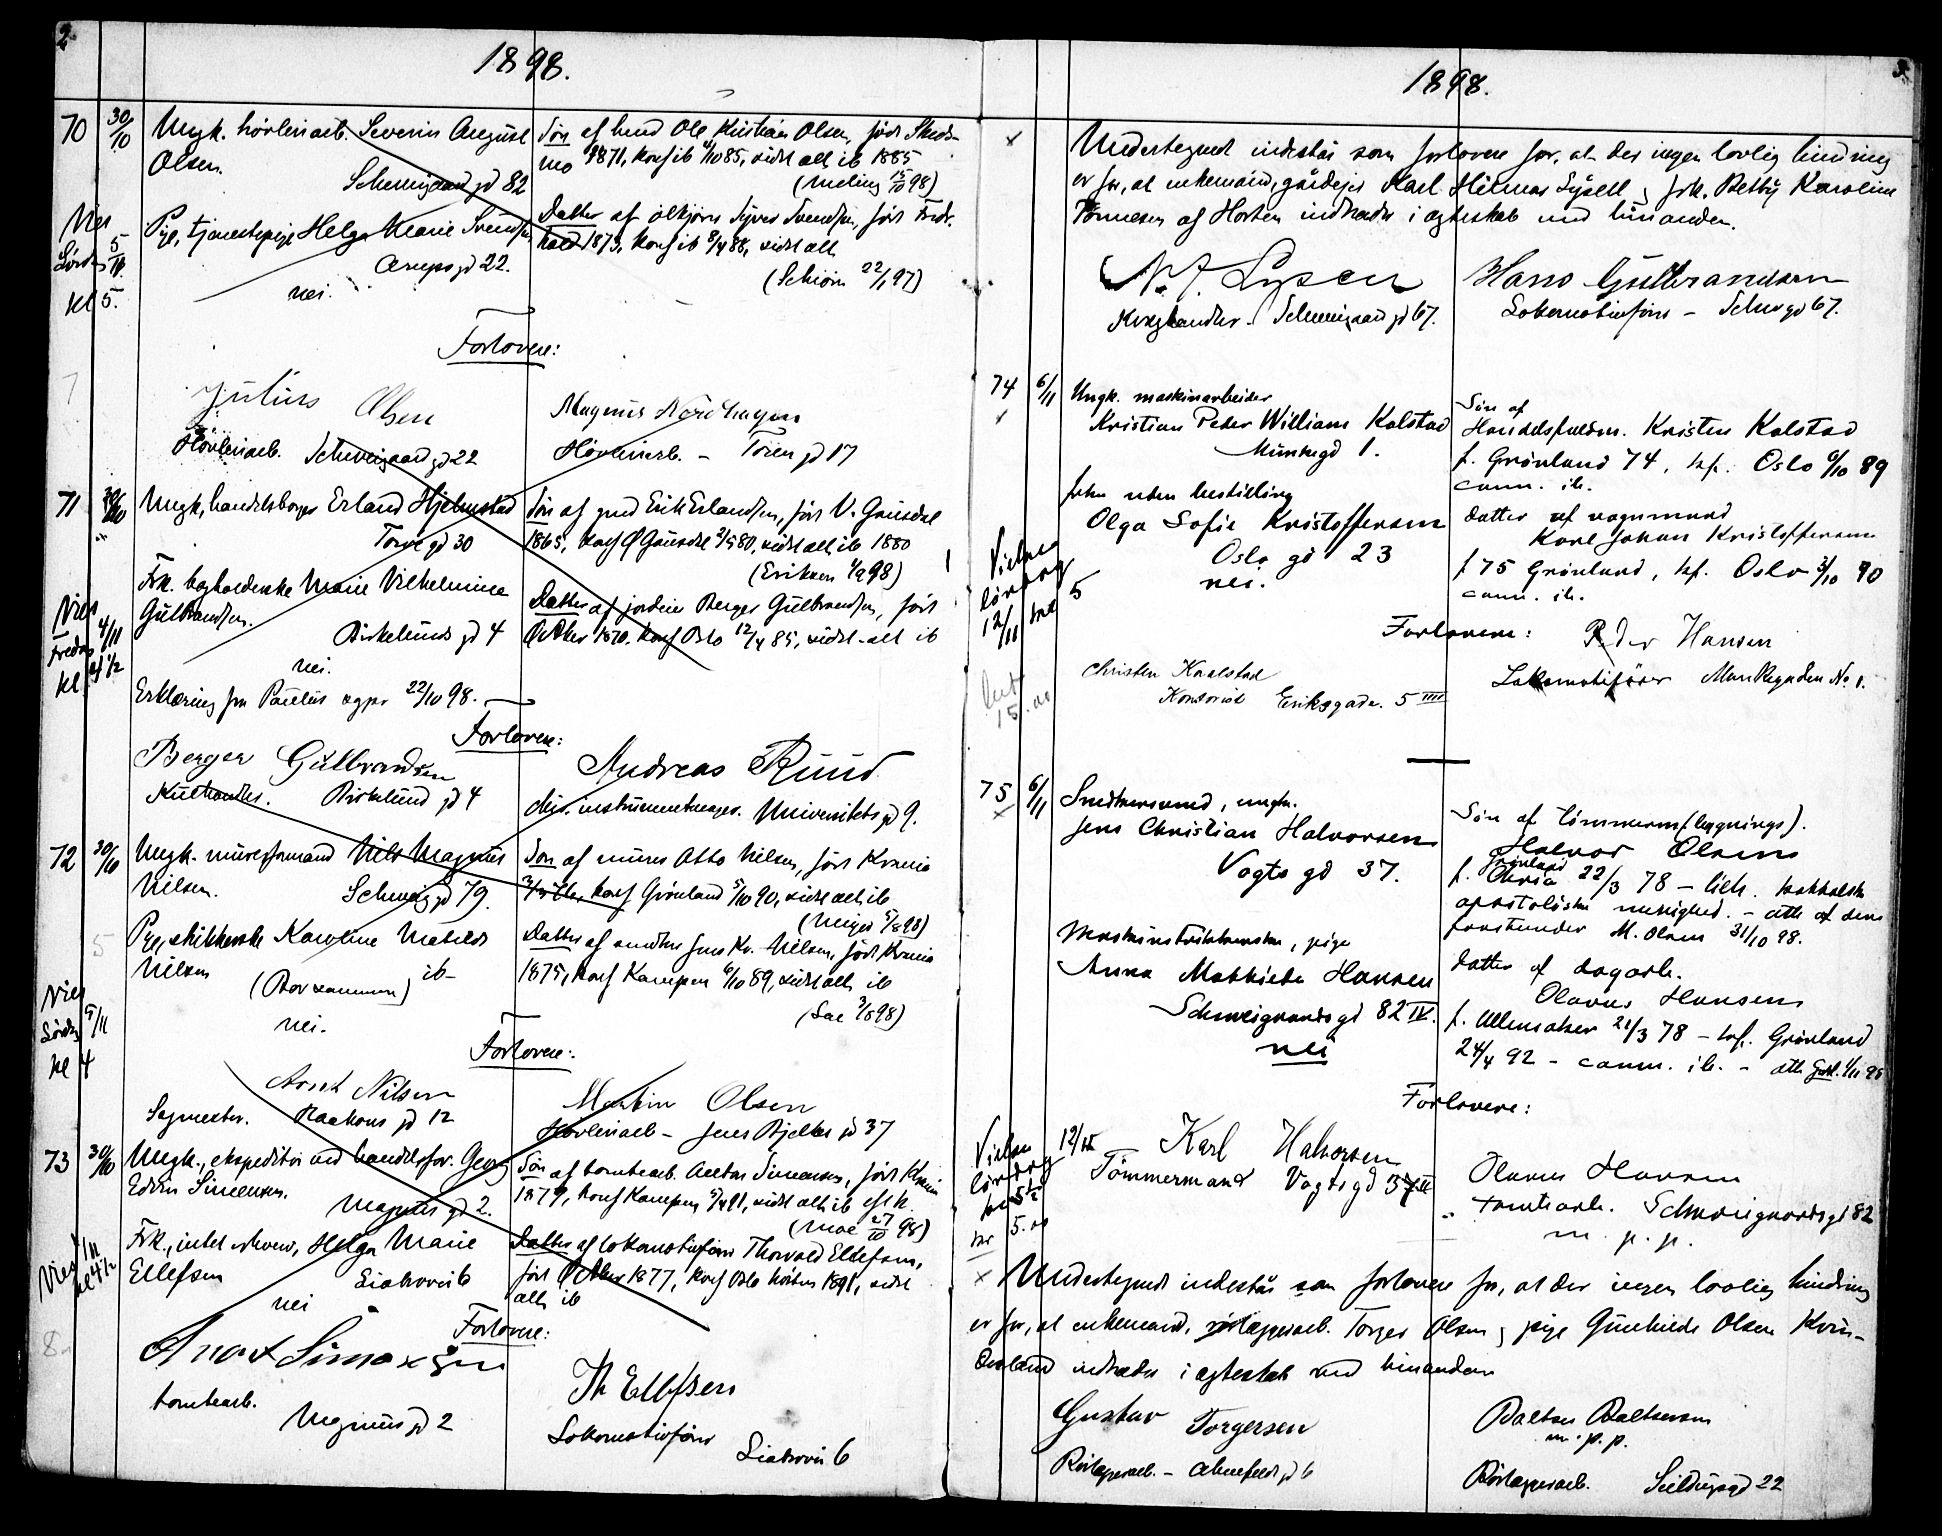 2.
1898.
70 30/10 Ungk. høvleriarb. Severin August
Olsen.
Schweigaard gd 82
Søn af Ole Kristian Olsen, født Skeds-
mo 1871, konf ib 4/10 85, sidst alt ib 1885
(Meling 15/10 98)
Vies
Lørdag 5/11
kl 5.
Pige, tjenestepige Helga Marie Svendsen
Arups gd 22.
nei.
Datter af ølkjører Syver Svendsen, født Fredr.
hald 1873, konf ib 8/4 88, sidst alt
(Schiørn 22/1 97)
Forlovere:
7
Julius Olsen
Høvleriarb. Schweigaard gd 22
Magnus Nordhagen
Høvleriarb. - Toien gd 17
71 30/10 Ungk, handelsborger Erland Hjelmstad
Torve gd 30
Søn af gmd Erik Erlandsen, født V. Gausdal
1865, konf Ø Gausdal 80, sidst alt ib 1880
(Eriksen 98)
Vies
Fredag 4/11
kl 4 1/2
Frk. bogholderske Marie Vilhelmine
Gulbrandsen.
Birkelunds gd 4
nei.
Datter af Berger Gulbrandsen, født
1870. konf Oslo 12/4 85, sidst alt ib
Erklæring fra Paulus sogn 22/10 98.
Forlovere:
Berger Gulbrandsen
Kulhandler. Birkelund gd 4
Andreas Ruud
kir. instrumentmager. Universitets gd 9.
72 30/10 Ungk. murerformand Nils Magnus
Nilsen. Schweig gd 79.
Søn af murer Otto Nilsen, født Krania
konf Grønland 5/10 90, sidst alt ib
5
Pige, Karoline Matilde
Nilsen (Bor sammen) ib
nei.
Datter af snedker Jens Kr. Nilsen, født Krania
1875, konf Kampen 6/10 89, sidst alt ib
Vies
Lørdag 5/11
kl 4
Forlovere:
Nilsen
Sagmester. Haakons gd 12
Martin Olsen
Høvleriarb - Jens Bjelkes gd 37
73 30/10 Ungk., ekspeditør ved handelsfor. Georg
Edvin Simensen.
Magnus gd 2.
Søn af tomtearb. Simensen, født Krania
1874, konf Kampen 91, sidst alt ib
(Moe 27/10 98)
Vies
kl 4 1/2
Frk., intet erhverv, Helga Marie
Ellefsen Liakovei 6
nei
Datter af lokomotivfører Thorvald Ellefsen,
født 1877, konf Oslo høsten 1891, sidst
alt ib
8
Forlovere:
tomtearb.
Magnus gd 2
Th Ellefsen
Lokomotivfører
Liakovei 6
3.
1898.
× Undertegnet indestår som forlovere for, at der ingen lovlig hindring
er for, at enkemand, gårdejer Karl Hilmar Lysell & frk. Betsy Karoline
Tønnesen af Horten indtræder i ægteskab med hinanden.
Schweigaard gd 67.
Hans Gulbrandsen
Lokomotivfører - Schw gd 67.
74 6/11 Ungk. maskinarbeider
× Kristian Peder William Kalstad
Munkegd 1.
Søn af
Handelsfuldm. Kristen Kalstad
f. Grønland 74, kf. Oslo 6/10 89
comm. ib.
frøken uden bestilling
Olga Sofie Kristoffersen
Oslo gd 23
nei.
Datter af vognmand
Karl Johan Kristoffersen
f 75 Grønland, kf. Oslo 5/10 90
comm. ib.
Vielsen
lørdag
12/11 kl 5
Forlovere:
Christen Kaalstad
Kontorist Eriksgade. 5 IIII
Peder Hansen
Lokomotivfører Munkegaden No. 1.
75 6/11 Snedkersvend, ungk.
× Jens Christian Halvorsen
Vogts gd 37.
Søn af tømmerm (bygnings).
Halvor Olsens
Grønland
f. Chria 22/3 78 - katholsk
apostoliske menighed. - att af dens
forstander M. Olsen 31/10 98.
Maskinstrikkerske, pige
Anna Mathilde Hansen
Schweigaardsgd 82 IV.
nei
Datter af dagarb.
Olavus Hansens
f. Ullensaker 21/3 78 - kf. Grønland
24/4 92 - comm. ib. - att
Forlovere:
Vielsen 12/11
lørdag
kl 5 1/2
kr 5.00
Karl Halvorsen
Tømmermand Vogtsgd 37 II
Olavus Hansen
tomtearb. Schweigaardsgd 82
m. p. p.
× Undertegnet indestår som forlovere for, at der ingen lovlig hindring
er for, at enkemand, rørlæggerarb. Torger Olsen & pige Gunhilde Olsen Kvin-
indtræder i ægteskab med hinanden
Gustav Torgersen
Rørlæggerarb. - gd 6
Baltser Baltsersen
m. p. p.
Rørlæggerarb. gd 22